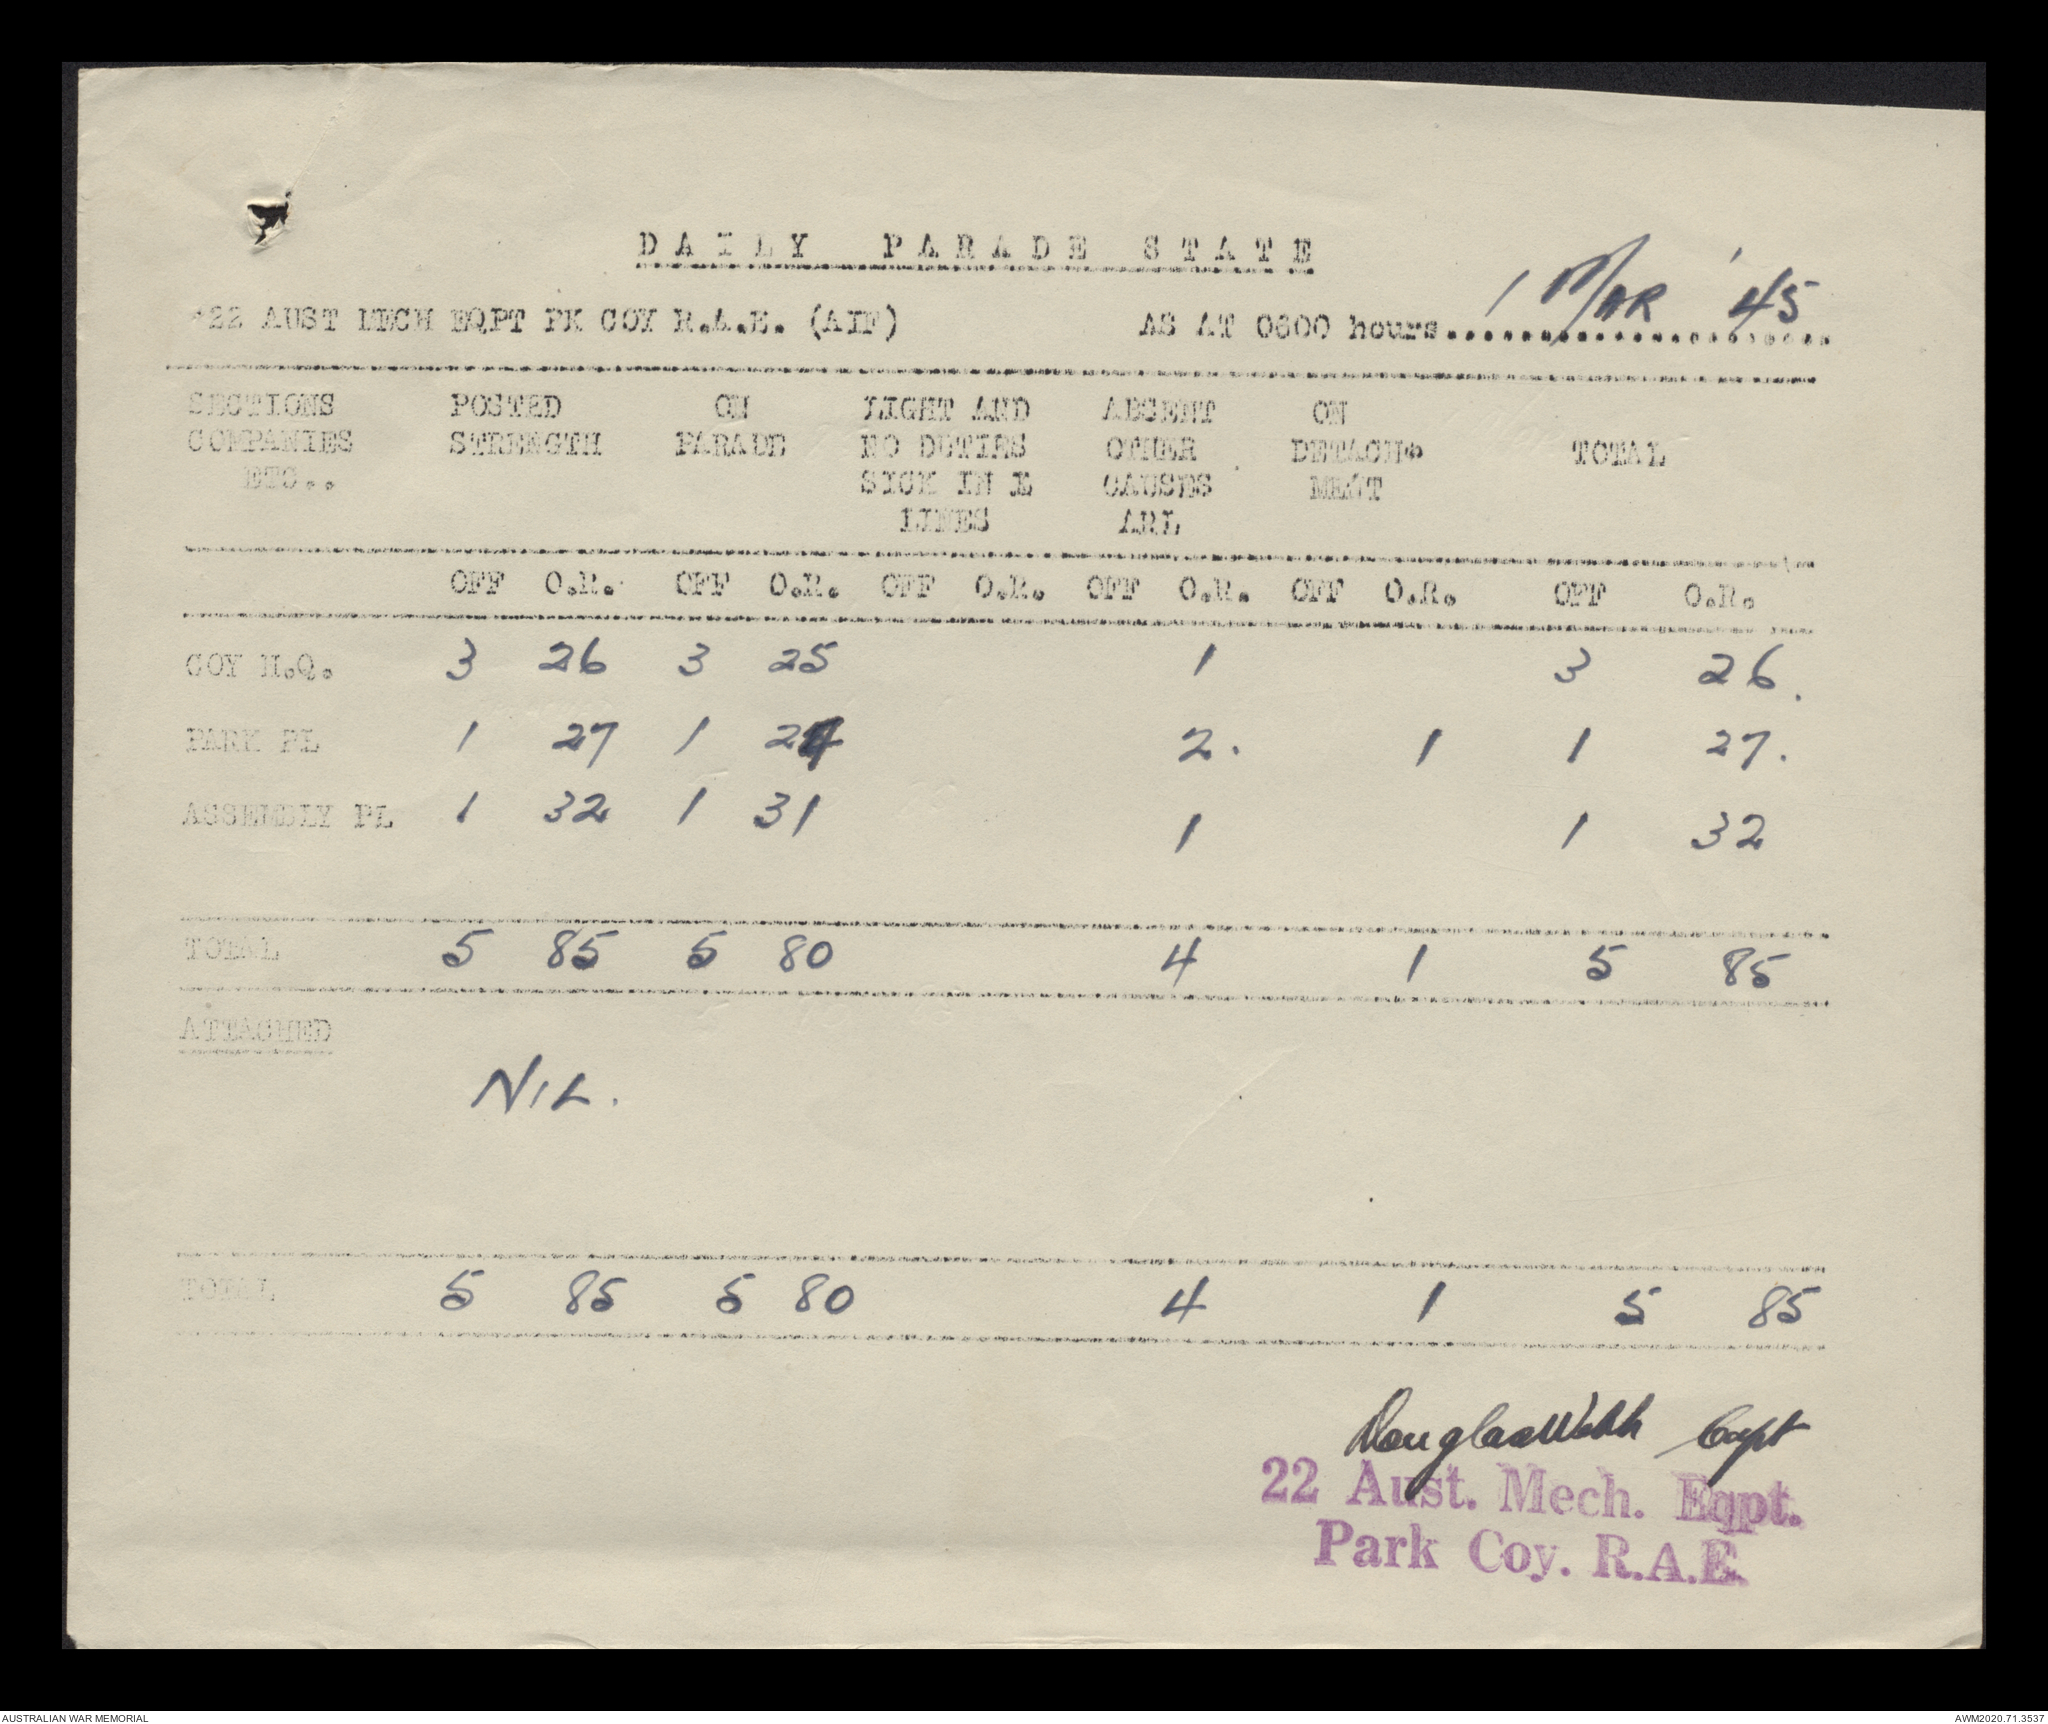 DAILY PARADE STATE
22 AUST MECH EQPT PK COY R.A.E. (AIF) AS AT 0600 hours 1 MAR '45
SECTIONS POSTED ON LIGHT AND ABSENT ON
COMPANIES STRENGTH PARADE NO DUTIES OTHER DETACH TOTAL
ETC.. SICK IN CAUSES MENT
LINES
OFF O.R. OFF O.R. OFF O.R. OFF O.R. OFF O.R. OFF O.R.
COY H.Q. 3 26 3 25 1 3 26.
PARK PL 1 27 1 24 2. 1 1 27.
ASSEMBLY PL 1 32 1 31 1 1 32
TOTAL 5 85 5 80 4 1 5 85
ATTACHED
NIL.
TOTAL 5 85 5 80 4 1 5 85
Douglas Webb Capt
22 Aust. Mech. Eqpt.
Park Coy. R.A.E.
AUSTRALIAN WAR MEMORIAL AWM2020.71.3537